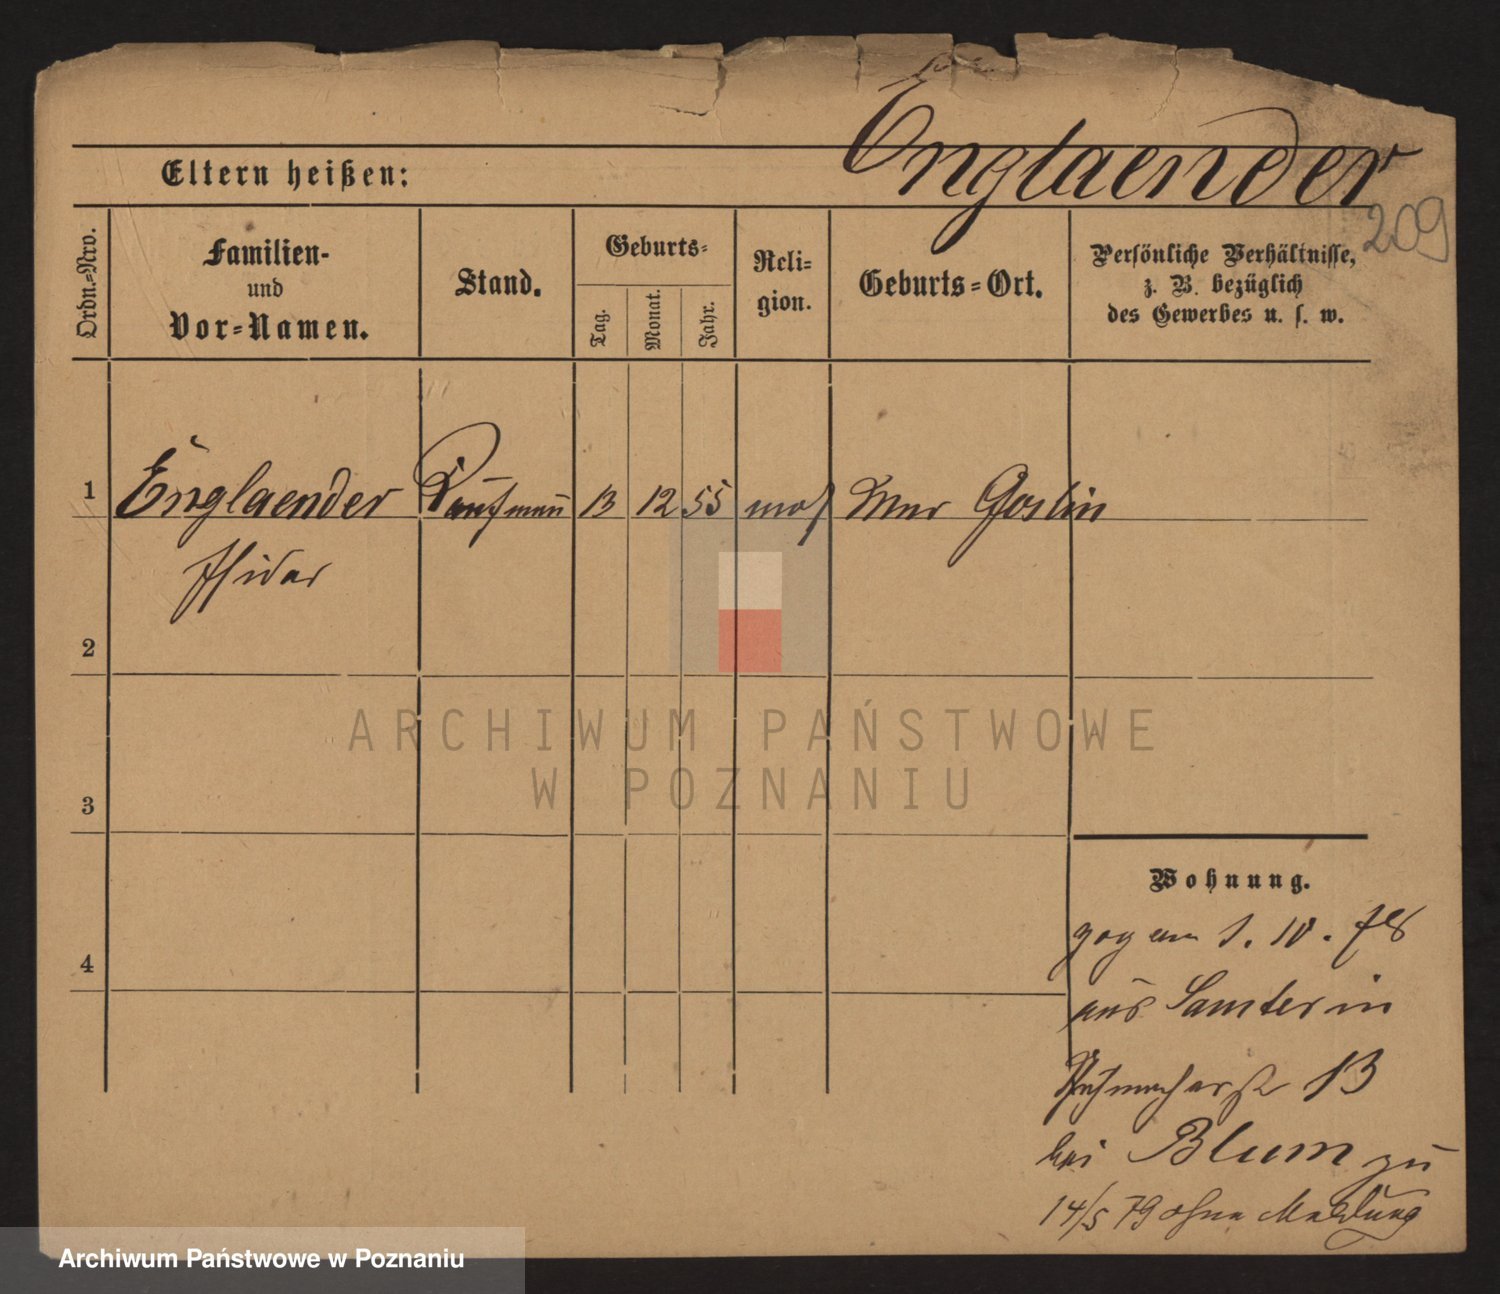 Englaender
Eltern heißen:
209
Ordn.=Nro.
Familien-
und
Vor=Namen.
Stand.
Geburts=
Tag.
Monat.
Jahr.
Reli=
gion.
Geburts=Ort.
Persönliche Verhältnisse,
z. B. bezüglich
des Gewerbes u. s. w.
1 Englaender Kaufmann 13 12 55 mos Mur Goslin
Isidor
2
3
4
Wohnung.
zog am 1. 10. 78
aus Samter in
13
bei Blum zu
14/5 79 ohne Meldung
ARCHIWUM PAŃSTWOWE
W POZNANIU
Archiwum Państwowe w Poznaniu